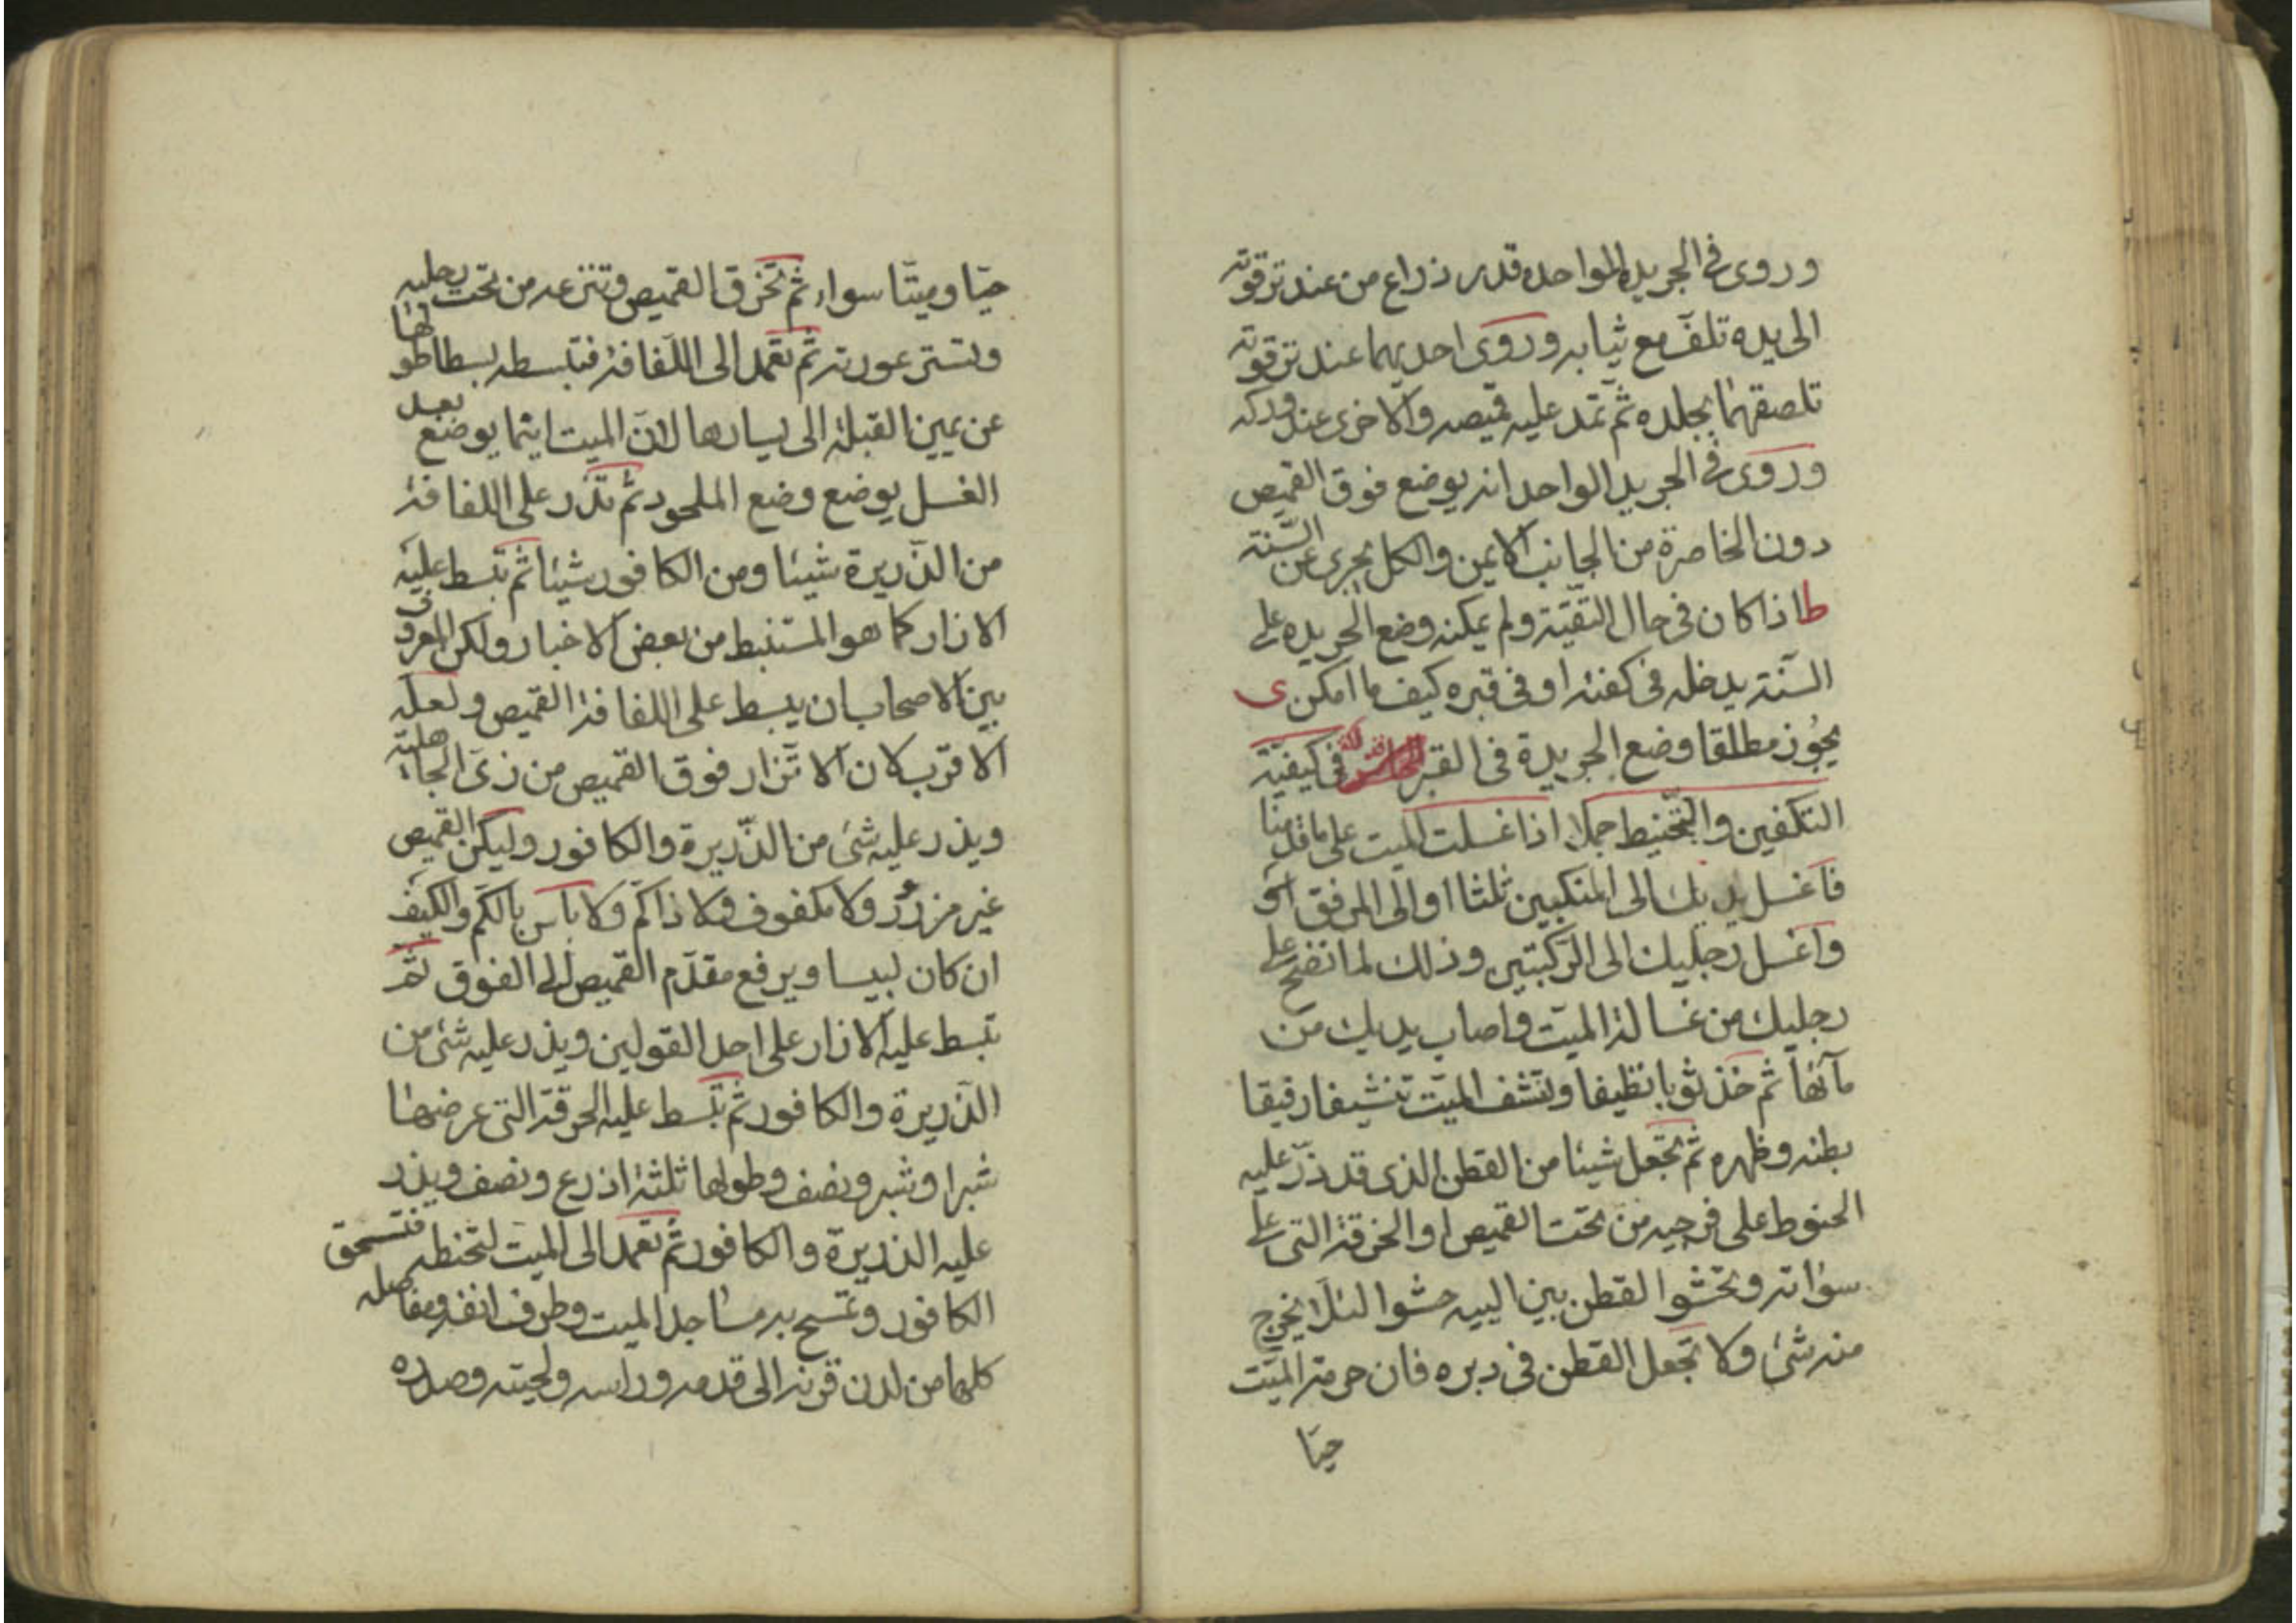 وروى في الجريدة الواحدة قدر ذراع من عند ترقوته
الى يده تلف مع ثيابه وروى احديهما عند ترقوته
تلصقهما بجلده ثم تمد عليه قميصه والاخرى عند وركه
وروى في الجريد الواحد انه يوضع فوق القميص
دون الخاصرة من الجانب الايمن والكل يجرى عن السنة
ط اذا كان في حال التقية ولم يمكنه وضع الجريده على
السنة يدخله في كفنه او في قبره كيف ما امكن ى
يجوز مطلقا وضع الجريدة في القبر في كيفية
التكفين والتحنيط جملا اذا غسلت الميت على ما قدمنا
فاغسل يديك الى المنكبين ثلثا او الى المرفق او
واغسل رجليك الى الركبتين وذلك لما انفضح على
رجليك من غسالة الميت واصاب يديك من
مآئها ثم خذ ثوبا نظيفا وتنشف الميت تنشيفا رفيقا
بطنه وظهره ثم تجعل شيئا من القطن الذى قد ذر عليه
الحنوط على فرجيه من تحت القميص او الخرقة التى على
سوأته وتحشوا القطن بين اليه حشوا لئلا يخرج
منه شئ ولا تجعل القطن في دبره فان حرمة الميت
حيا
حيا وميتا سواء ثم تخرق القميص وتنزعه من تحت رجليه
وتستر عورته ثم تعمد الى اللفافة فتبسطه بسطا طولها
عن يمين القبلة الى يسارها لان الميت ايثما يوضع بعد
الغسل يوضع وضع الملحود ثم تذر على اللفافة
من الذريرة شيئا ومن الكافور شيئا ثم تبسط عليه
الازار كما هو المستنبط من بعض الاخبار ولكن المعروف
بين الاصحاب ان يبسط على اللفافة القميص ولعله
الاقرب لان الاتزار فوق القميص من زى الجاهلية
ويذر عليه شئ من الذريرة والكافور وليكن القميص
غير مزرور ولا مكفوف ولا ذا كم ولا باس بالكم والكيف
ان كان لبيسا ويرفع مقدم القميص الى الفوق ثم
تبسط عليه الازار على احد القولين ويذر عليه شئ من
الذريرة والكافور ثم تبسط عليه الخرقة التى عرضها
شبر او شبر ونصف وطولها ثلثة اذرع ونصف ويذر
عليه الذريرة والكافور ثم تعمد الى الميت لتحنطه فتسحق
الكافور وتمسح به مساجد الميت وطرف انفه ومفاصله
كلها من لدن قرنه الى قدمه وراسه ولحيته وصدره